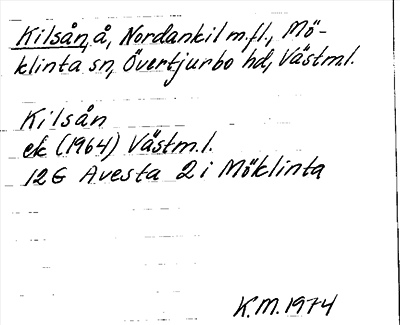 Kilsån, å, Nordankil m.fl., Mö-
klinta sn, Övertjurbo hd, Västml.
Kilsån
ek (1964) Västm.l.
12G Avesta 2 i Möklinta
K.M. 1974